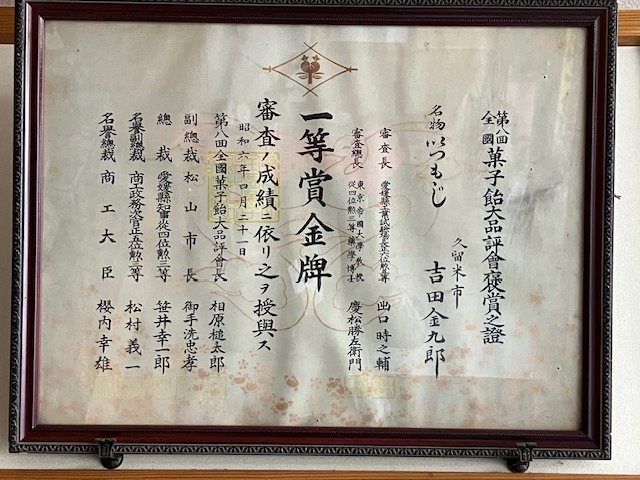 第八回全國菓子飴大品評會褒賞之證
久留米市
名物 いつもじ 吉田金九郎
審査長 出口時之輔
審査總長 東京帝國大學教授從四位勲三等藥學博士 慶松勝左衛門
一等賞金牌
審査ノ成績ニ依リ之ヲ授與ス
昭和六年四月二十一日
第八回全國菓子飴大品評會長 相原槌太郎
副總裁 松山市長 御手洗忠孝
總裁 愛媛縣知事從四位勲三等 笹井幸一郎
名譽副總裁 商工政務次官正五位勲三等 松村義一
名譽總裁 商工大臣 櫻内幸雄